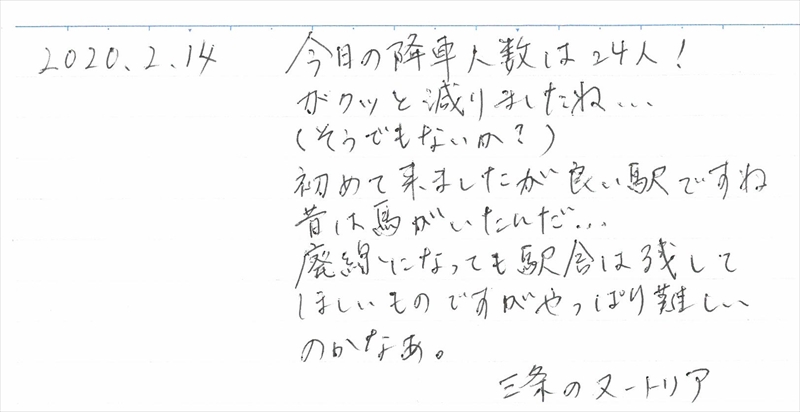 2020.2.14 今日の降車人数は24人!
ガクッと減りましたね...
(そうでもないか?)
初めて来ましたが良い駅ですね
昔は馬がいたんだ...
廃線になっても駅舎は残して
ほしいものですがやっぱり難しい
のかなあ。
三条のヌートリア